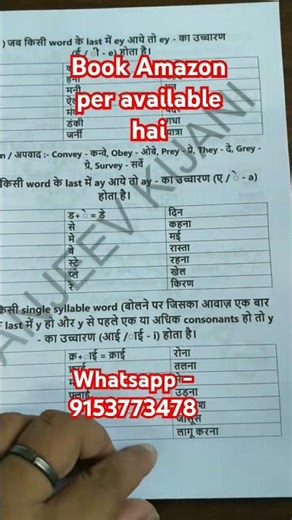 ) जब किसी word के last में ey आये तो ey - का उच्चारण
(ई / ी - e) होता है।
Book Amazon
per available
hai
हनी
मनी
डंकी
जर्नी
यात्रा
n / अपवाद :- Convey - कन्वे, Obey - ओबे, Prey - प्रे, They - दे, Grey -
प्रे, Survey - सर्वे
किसी word के last में ay आये तो ay - का उच्चारण (ए / े - a)
होता है।
ड+ े = डे दिन
से कहना
मे मई
वे रास्ता
स्टे रहना
प्ले खेल
रे किरण
SANJEEV KIJANI
किसी single syllable word (बोलने पर जिसका आवाज़ एक बार
last में y हो और y से पहले एक या अधिक consonants हो तो y
- का उच्चारण (आई /ाई - i) होता है।
क्र+ाई = क्राई रोना
तलना
Whatsapp –
9153773478
फ्लाई उड़ना
जासूस
लागू करना